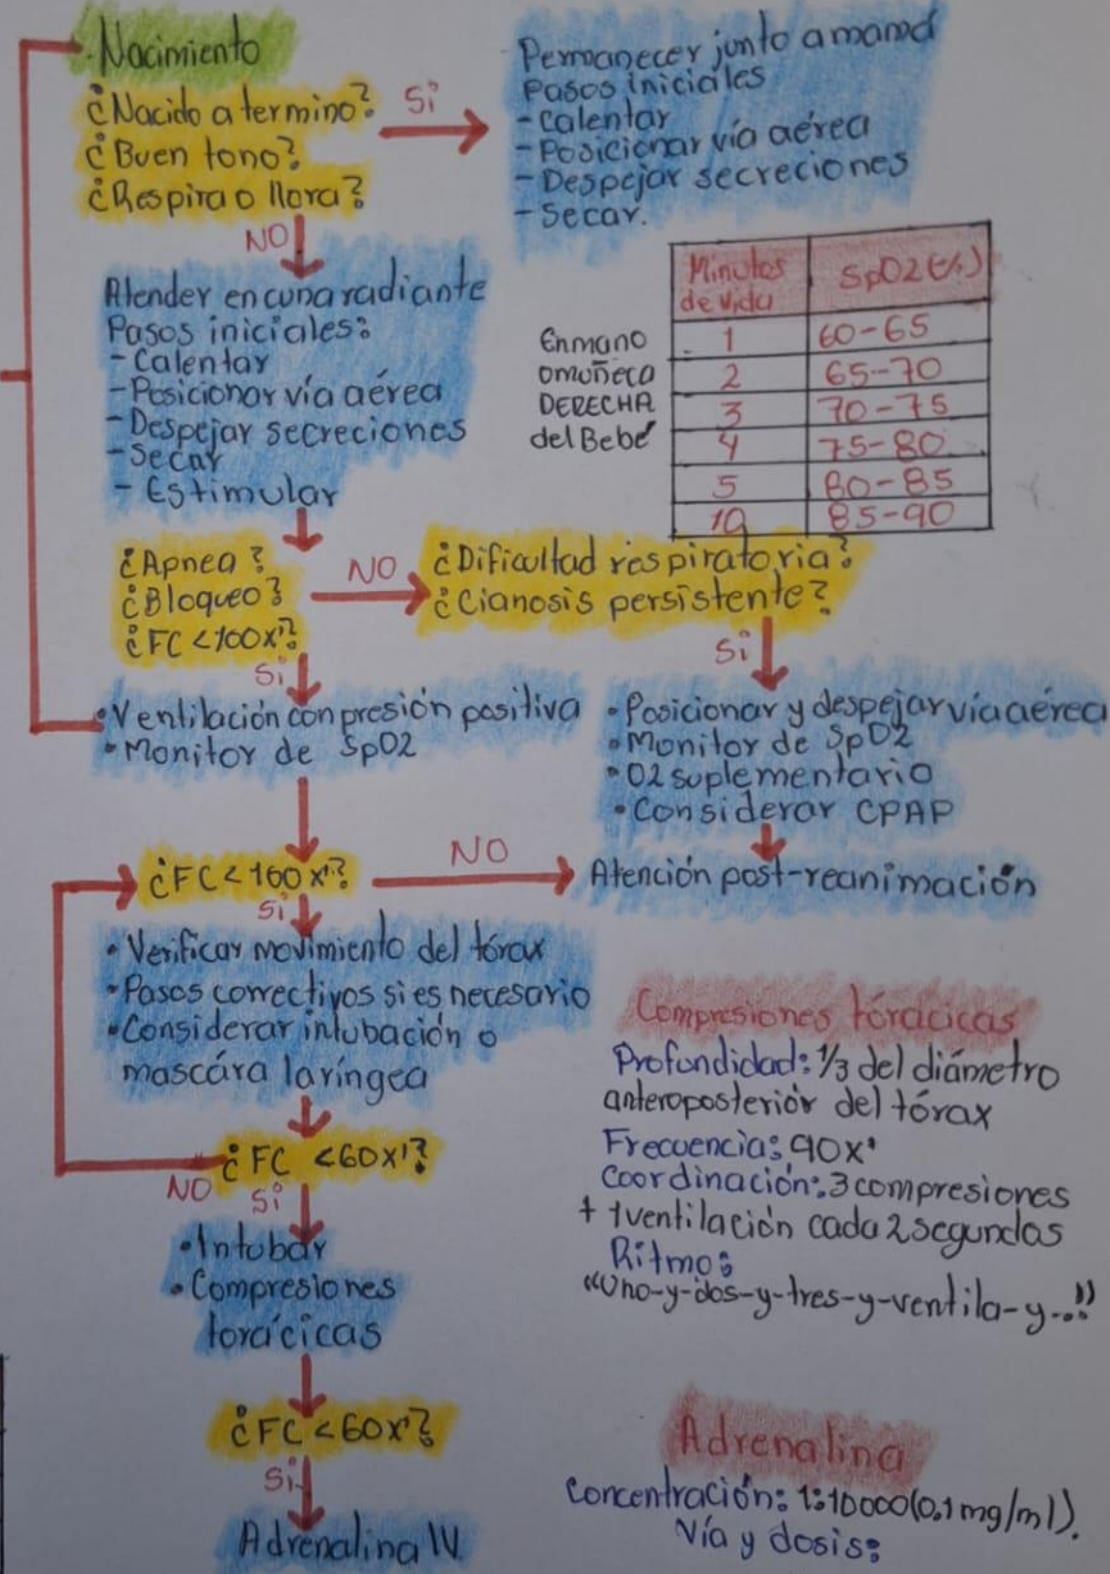 Nacimiento
¿Nacido a termino?
¿Buen tono?
¿Respira o llora?
Si
Permanecer junto a mamá
Pasos iniciales
- Calentar
- Posicionar vía aérea
- Despejar secreciones
- Secar.
NO
Atender en cuna radiante
Pasos iniciales:
- Calentar
- Posicionar vía aérea
- Despejar secreciones
- Secar
- Estimular
En mano
o muñeca
DERECHA
del Bebé
Minutos de vida SpO2 (%)
1 60-65
2 65-70
3 70-75
4 75-80
5 80-85
10 85-90
¿Apnea?
¿Bloqueo?
¿FC <100x'?
NO
¿Dificultad respiratoria?
¿Cianosis persistente?
Si
Si
• Ventilación con presión positiva
• Monitor de SpO2
• Posicionar y despejar vía aérea
• Monitor de SpO2
• O2 suplementario
• Considerar CPAP
¿FC <100x'?
NO
Atención post-reanimación
Si
• Verificar movimiento del tórax
• Pasos correctivos si es necesario
• Considerar intubación o
mascára laríngea
¿FC <60x'?
NO
Si
• Intubar
• Compresiones
torácicas
¿FC <60x'?
Si
Adrenalina IV
Compresiones torácicas
Profundidad: 1/3 del diámetro
anteroposterior del tórax
Frecuencia: 90x'
Coordinación: 3 compresiones
+ 1 ventilación cada 2 segundos
Ritmo:
"Uno-y-dos-y-tres-y-ventila-y..."
Adrenalina
Concentración: 1:10000 (0.1 mg/ml).
Vía y dosis: